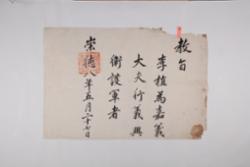 教旨
李植為嘉義
大夫行義興
衛護軍者
崇德八年五月二十七日